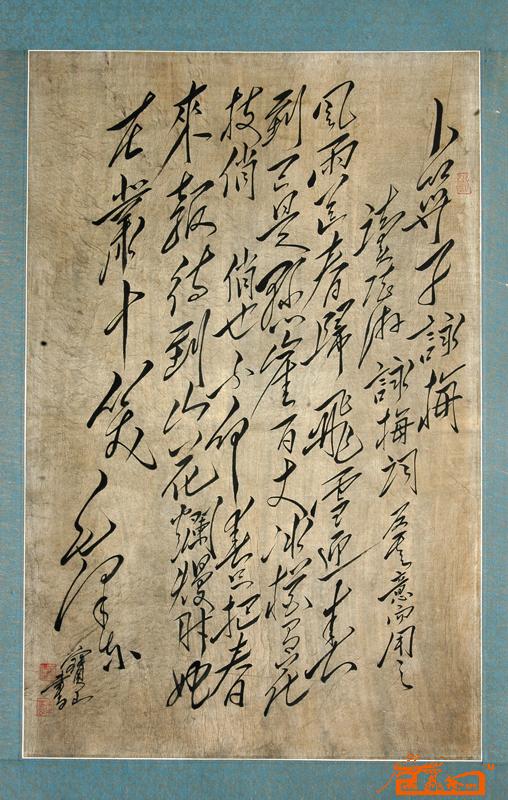 卜算子 詠梅
讀陸游詠梅詞 反其意而用之
風雨送春歸 飛雪迎春
到 已是懸崖百丈冰 猶有花
枝俏 俏也不爭春 只把春
來報 待到山花爛熳時 她
在叢中笑 毛澤東
書